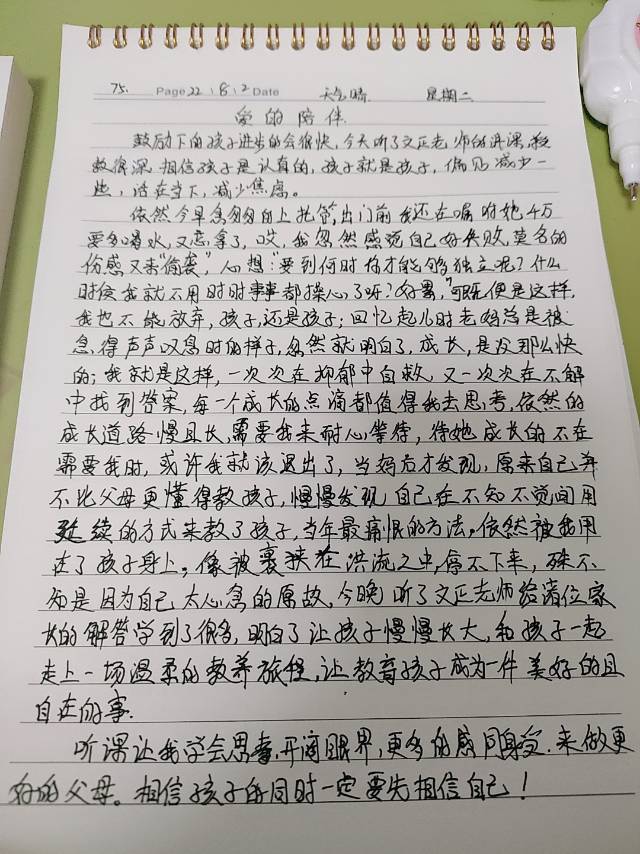 75. Page 22 \ 8 \ 2 Date 天气晴 星期二
爱的陪伴
鼓励下的孩子进步的会很快,今天听了文正老师的讲课,
相信孩子是认真的,孩子就是孩子,偏见减少一
些,活在当下,减少焦虑。
依然今早急匆匆的上托管,出门前我还在嘱咐她千万
要多喝水,又忘拿了,哎,我忽然感觉自己好失败,莫名的
伤感又来"偷袭",心想:"要到何时你才能够独立呢?什么
时候我就不用时时事事都操心了呀?好累,"可既便是这样,
我也不能放弃,孩子,还是孩子;回忆起儿时老妈总是被
急得声声叹息时的样子,忽然就明白了,成长,是没那么快
的;我就是这样,一次次在抑郁中自救,又一次次在不解
中找到答案,每一个成长的点滴都值得我去思考,依然的
成长道路慢且长,需要我来耐心等待,待她成长的不在
需要我时,或许我就该退出了,当妈后才发现,原来自己并
不比父母更懂得教孩子,慢慢发现自己在不知不觉间用
延续的方式来教了孩子,当年最痛恨的方法,依然被我用
在了孩子身上,像被裹狭在洪流之中,停不下来,殊不
知是因为自己太心急的原故,今晚听了文正老师给诸位家
长的解答学到了很多,明白了让孩子慢慢长大,和孩子一起
走上一场温柔的教养旅程,让教育孩子成为一件美好的且
自在的事.
听课让我学会思考,开阔眼界,更多的感同身受.来做更
好的父母。相信孩子的同时一定要先相信自己!